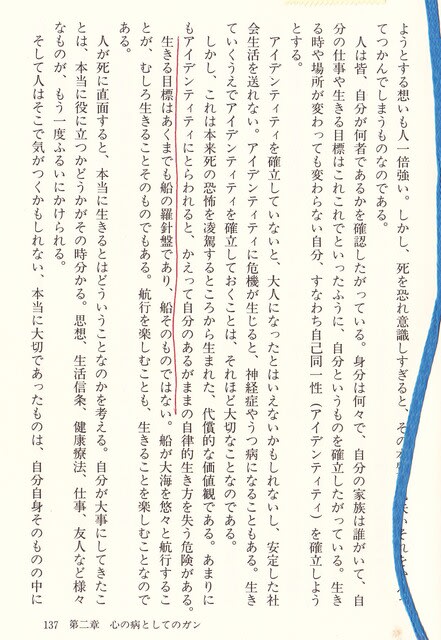 ようとする想いも人一倍強い。しかし、死を恐れ意識しすぎると、その
てつかんでしまうものなのである。
人は皆、自分が何者であるかを確認したがっている。身分は何々で、自分の家族は誰がいて、自
分の仕事や生きる目標はこれこれでといったふうに、自分というものを確立したがっている。生き
る時や場所が変わっても変わらない自分、すなわち自己同一性（アイデンティティ）を確立しよう
とする。
アイデンティティを確立していないと、大人になったとはいえないかもしれないし、安定した社
会生活を送れない。アイデンティティに危機が生じると、神経症やうつ病になることもある。生き
ていくうえでアイデンティティを確立しておくことは、それほど大切なことなのである。
しかし、これは本来死の恐怖を凌駕するところから生まれた、代償的な価値観である。あまりに
もアイデンティティにとらわれると、かえって自分のあるがままの自律的生き方を失う危険がある。
生きる目標はあくまでも船の羅針盤であり、船そのものではない。船が大海を悠々と航行するこ
とが、むしろ生きることそのものでもある。航行を楽しむことも、生きることを楽しむことなので
ある。
人が死に直面すると、本当に生きるとはどういうことなのかを考える。自分が大事にしてきたこ
とは、本当に役に立つかどうかがその時分かる。思想、生活信条、健康療法、仕事、友人など様々
なものが、もう一度ふるいにかけられる。
そして人はそこで気がつくかもしれない、本当に大切であったものは、自分自身そのものの中に
137 第二章 心の病としてのガン